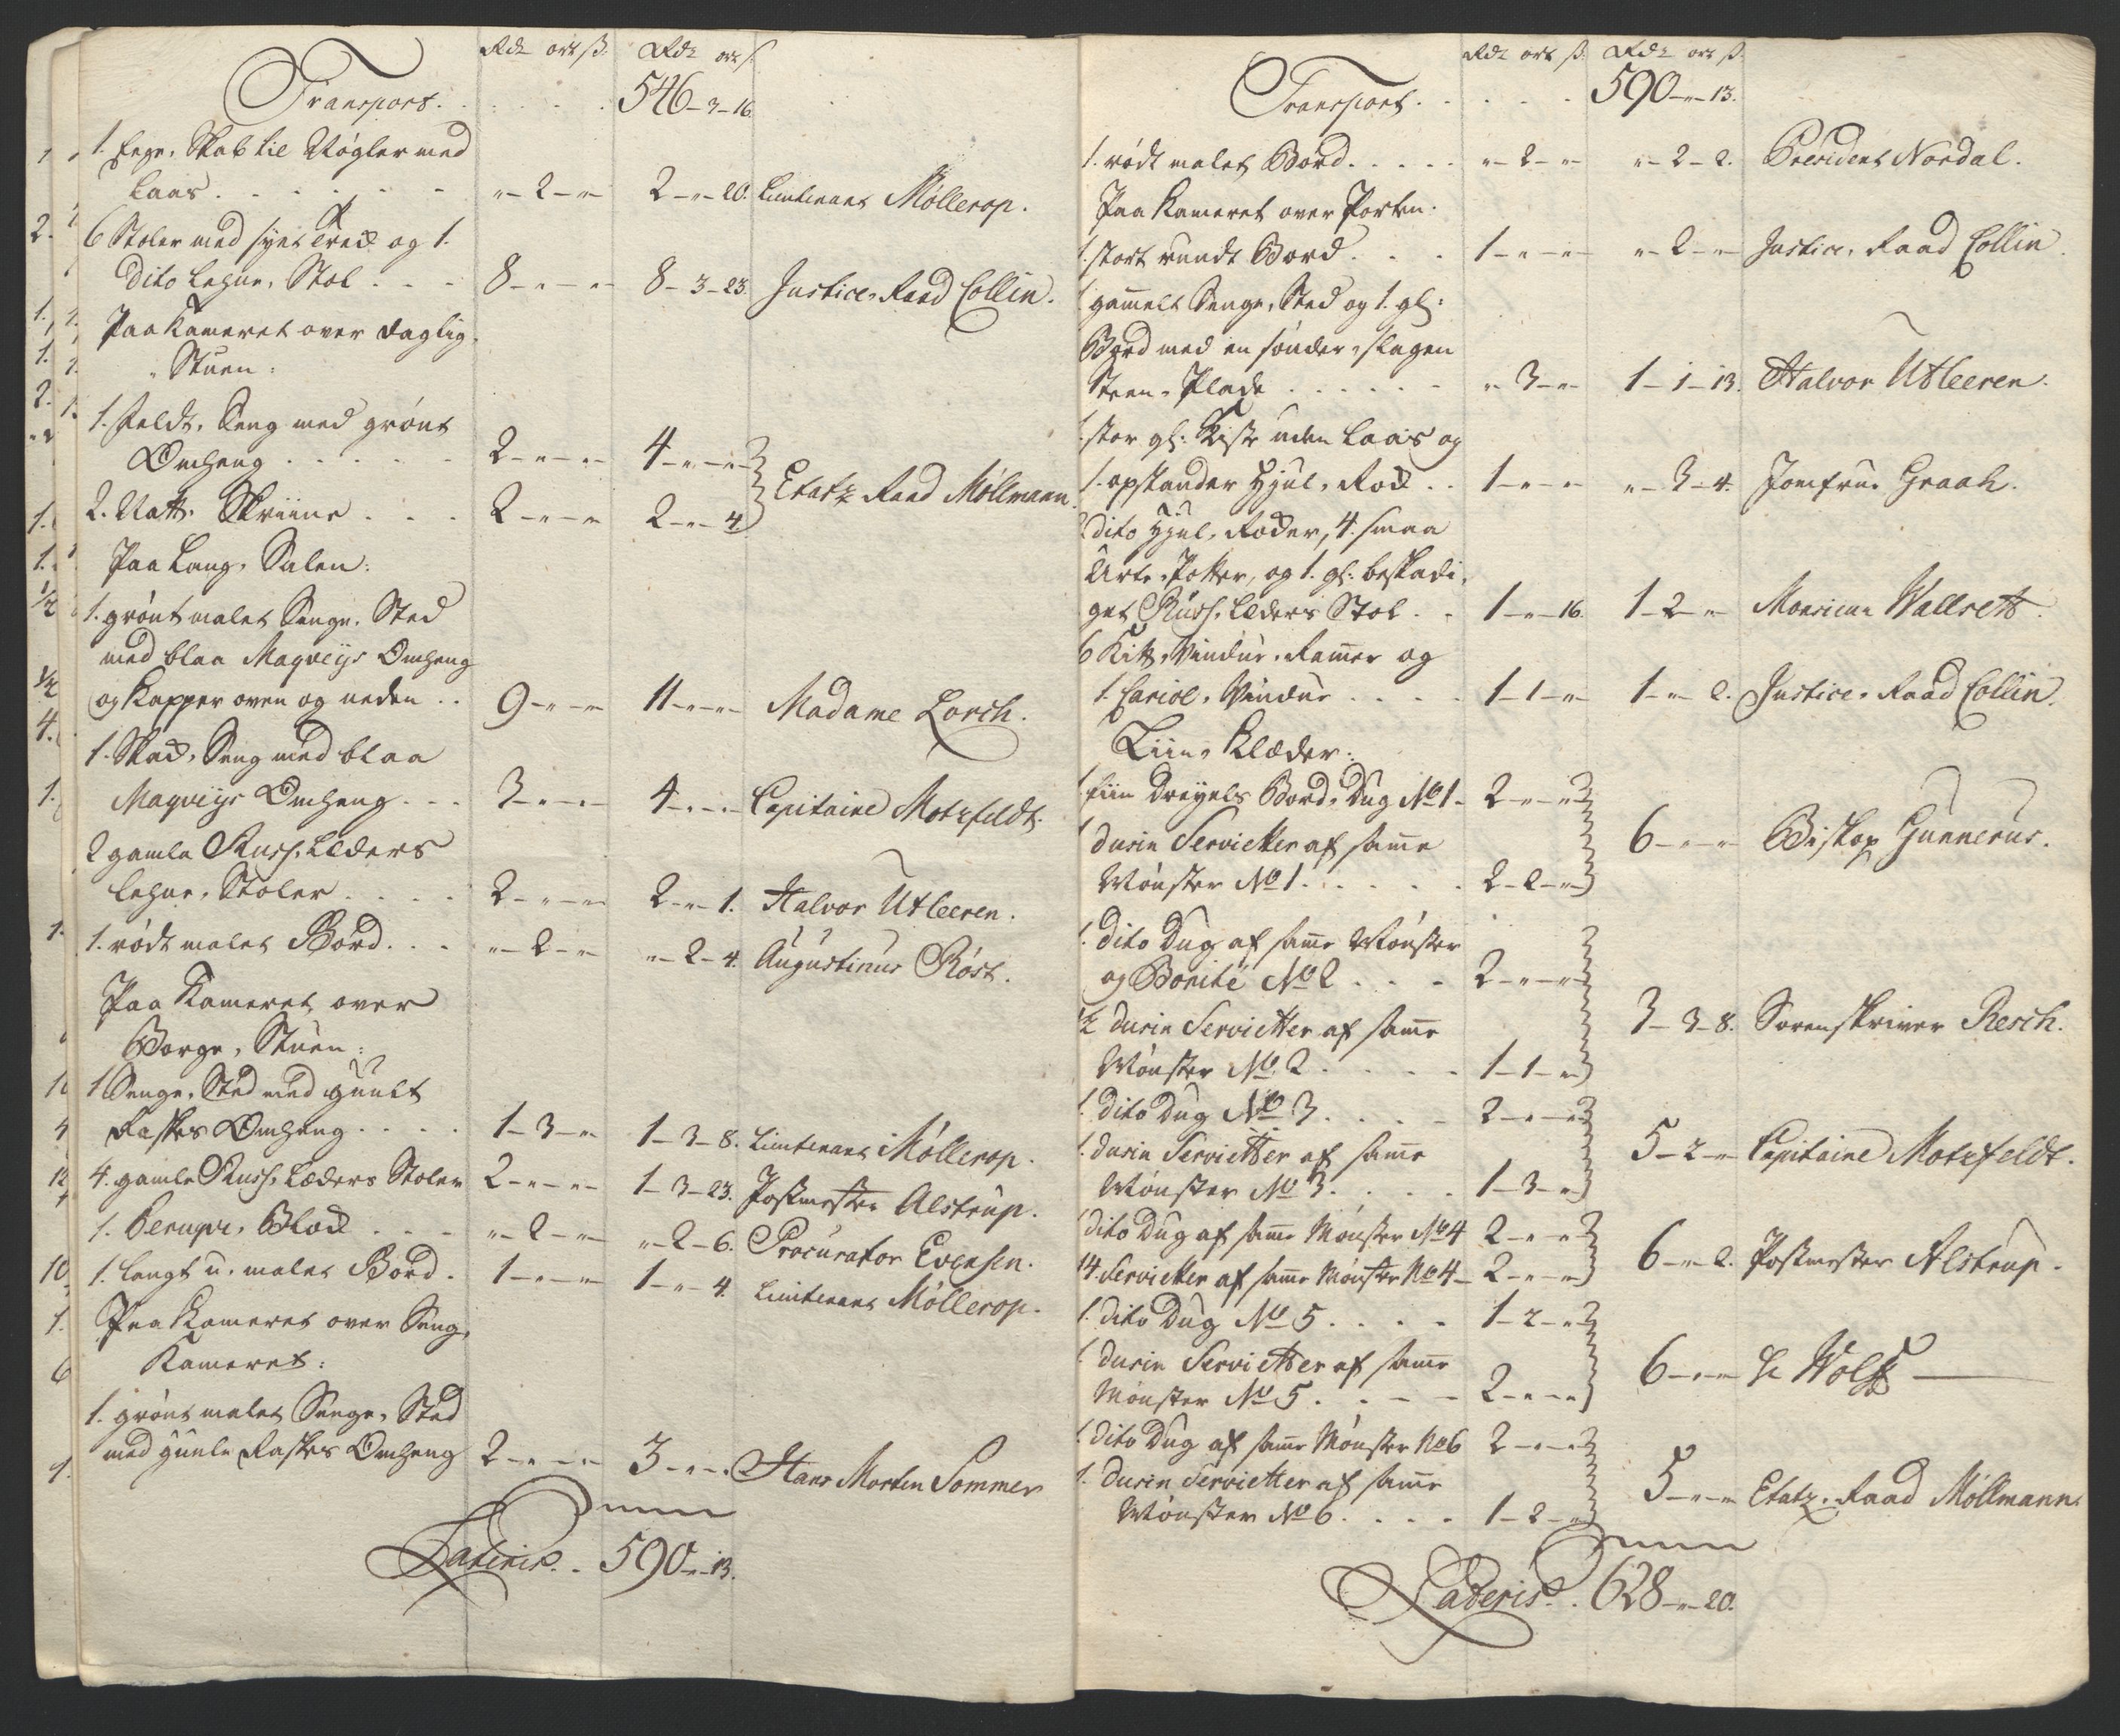 Rdr ort ß. Rdr ort ß.
Transport. . . . . . 546-3-16.
1. Ege, Skab til Nøgler med
Laas . . . . . . "-2-" 2-"-20. Lieutenant Møllerop.
6 Stoler med syet Træk og 1.
dito Lehne, Stol . . . 8-"-" 8-3-23. Justice, Raad Collin.
Paa Kameret over Daglig,
Stuen:
1. Feldt, Seng med grønt
Omheng . . . . . . 2-"-" 4-"-"
2. Natt, Skriine . . . 2-"-" 2-"-4. Etatz Raad Møllmann.
Paa Lang, Salen:
1. grønt malet Senge, Sted
med blaa Maqveijs Omheng
og Kapper oven og neden . . 9-"-" 11-"-" Madame Lorch.
1. Skab, Seng med blaa
Maqveijs Omheng . . . 3-"-" 4-"-" Capitaine Motzfeldt.
2 gamle Russ, Læders
Lehne, Stoler . . . . 2-"-" 2-"-1. Halvor Utleeren.
1. rødt malet Bord . . . "-2-" "-2-4. Augustinus Røst.
Paa Kameret over
Borge, Stuen:
1 Senge, Sted med guult
Raskes Omheng . . . . 1-3-" 1-3-8. Lieutenant Møllerop.
4. gamle Russ, Læders Stoler 2-"-" 1-3-23. Postmester Alstrup.
1. Peruqve, Blok . . . "-2-" "-2-6. Procurator Evensen.
1. langt u, malet Bord . 1-"-" 1-"-4. Lieutenant Møllerop.
Paa Kameret over Seng,
Kameret:
1. grønt malet Senge, Sted
med guule Raskes Omheng 2-"-" 3-"-" Hans Morten Sommer
Lateris. . 590-"-13.
Rdr ort ß. Rdr ort ß.
Transport. . . . . . 590-"-13.
1. rødt malet Bord . . . . "-2-" "-2-2. President Nordal.
Paa Kameret over Porten.
1. stort rundt Bord . . . 1-"-" "-2-" Justice, Raad Collin.
1 gammelt Senge, Sted og 1. gl:
Bord med en sønder, slagen
Steen, Plade . . . . . . "-3-" 1-1-13. Halvor Utleeren.
1. stor gl: Kiste uden Laas og
1. opstander Hjul, Rok . . 1-"-" "-3-4. Jomfrue Graah.
2 dito Hjul, Rokker, 4. smaa
Urte, Potter, og 1. gl: beskadi,
get Russ, Læders Stol . . 1-"-16. 1-2-" Monsieur Wallsett.
6 Kitt, Vindue, Rammer og
1. Cariol, Vindue . . . . 1-1-" 1-"-2. Justice, Raad Collin.
Liin, Klæder:
1 fiin Dreyels Bord, Dug No 1- 2-"-"
1 dusin Servietter af samme
Mønster No 1. . . . . . 2-2-" 6-"-" Biskop Gunnerus.
1. dito Dug af samme Mønster
og Bonité No 2 . . . 2-"-"
1/2 dusin Servietter af samme
Mønster No. 2 . . . . . 1-1-" 3-3-8. Sorenskriver Resch.
1. dito Dug No 3 . . . . 2-"-"
1. dusin Servietter af samme
Mønster No 3. . . . . 1-3-" 5-2-" Capitaine Motzfeldt.
1 dito Dug af samme Mønster No 4 2-"-"
14. Servietter af samme Mønster No 4- 2-"-" 6-"-2. Postmester Alstrup.
1. dito Dug No 5 . . . . 1-2-"
1. dusin Servietter af samme
Mønster No 5 . . . . 2-"-" 6-"-" Hr Wolff
1. dito Dug af samme Mønster No 6 2-"-"
1. dusin Servietter af samme
Mønster No 6 . . . . 1-2-" 5-"-" Etatz, Raad Møllmann.
Lateris. . 628-"-20.